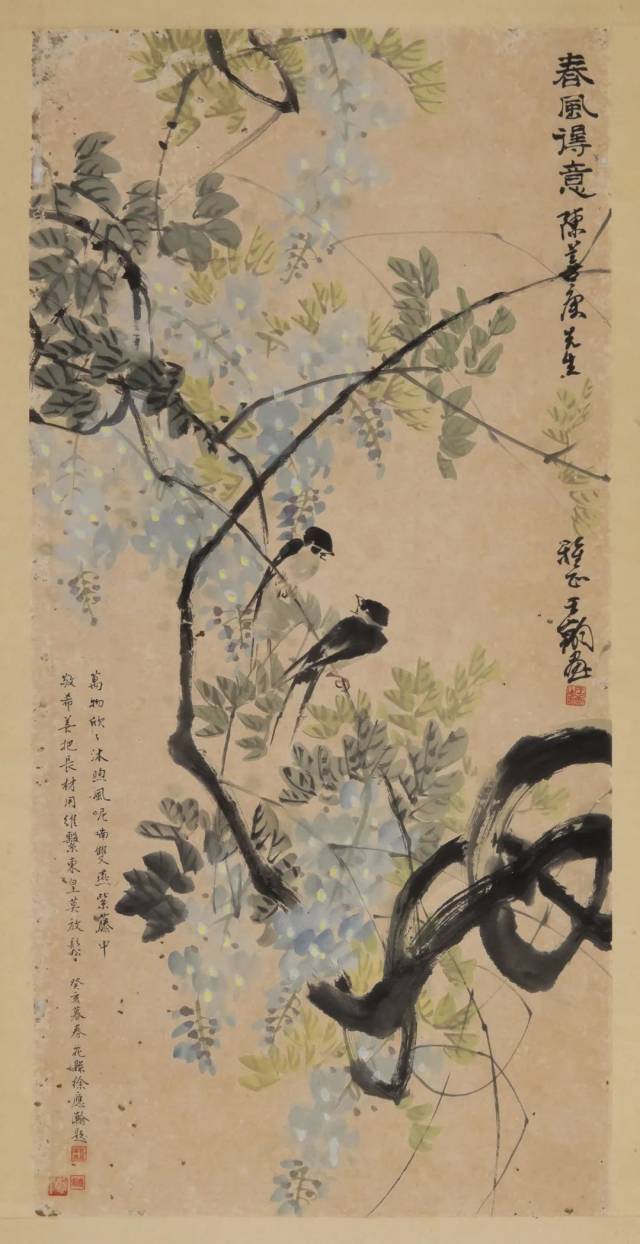 春風得意
陳善庚先生
雅正 王鏑畫
萬物欣〻沐煦風呢喃雙燕紫藤中
敬希善把長材用維繫東皇莫放鬆 癸亥暮春花縣徐應瀚題